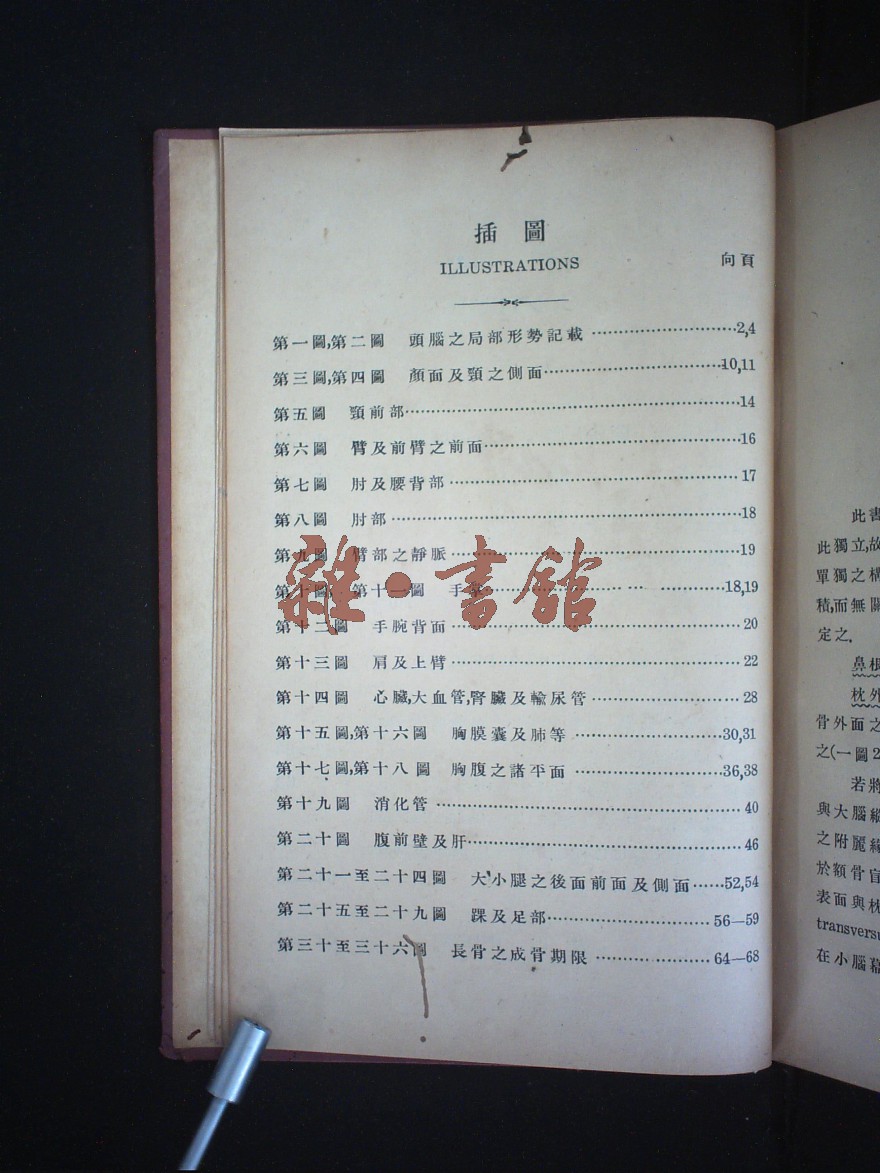 插圖
ILLUSTRATIONS
向頁
第一圖,第二圖 頭腦之局部形勢記載 2,4
第三圖,第四圖 顏面及頸之側面 10,11
第五圖 頸前部 14
第六圖 臂及前臂之前面 16
第七圖 肘及腰背部 17
第八圖 肘部 18
第九圖 臂部之靜脈 19
第十圖, 第十一圖 手掌 18,19
第十二圖 手腕背面 20
第十三圖 肩及上臂 22
第十四圖 心臟,大血管,腎臟及輸尿管 28
第十五圖,第十六圖 胸膜囊及肺等 30,31
第十七圖,第十八圖 胸腹之諸平面 36,38
第十九圖 消化管 40
第二十圖 腹前壁及肝 46
第二十一至二十四圖 大小腿之後面前面及側面 52,54
第二十五至二十九圖 踝及足部 56—59
第三十至三十六圖 長骨之成骨期限 64—68
雜·書館
此書
此獨立,故
單獨之構
積,而無關
定之.
鼻根
枕外
骨外面之
之(一圖2
若將
與大腦縱
之附麗緣
於額骨盲
表面與枕
transversu
在小腦幕